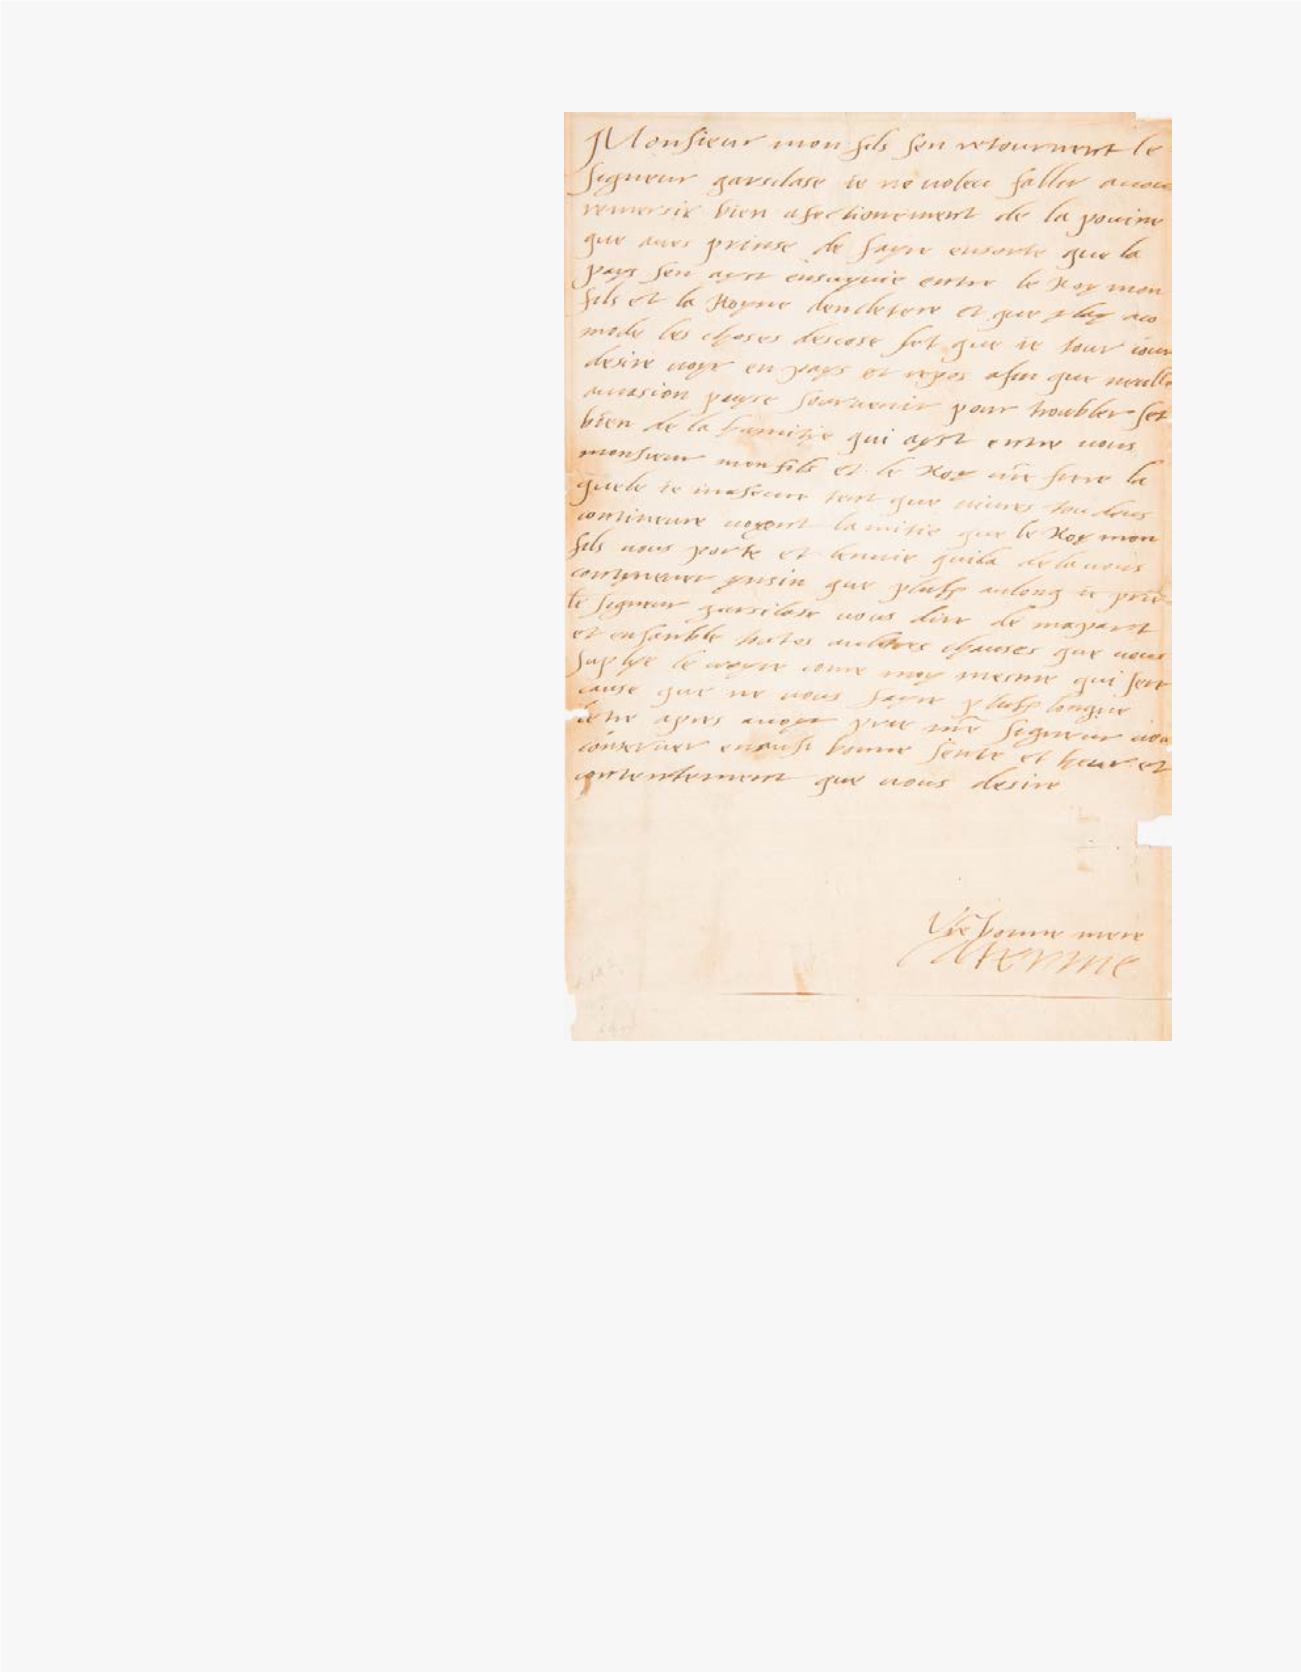 Monsieur mon fils sen retournent le
signeur garsilase ie ne voleu
remersir bien afectionement de la pouine
que aves prinse de fayre ensorte que la
pays sen ayst ensuyvie entre le Roy mon
fils et la Royne dencletere et que aco
mode les choses descose set que ie tour iour
desire voyr en pays et repos afin que neulle
aucasion puyse sourvenir pour troubler set
bien de la hamitye qui ayst entre vous
monsieur mon fils et le Roy vre frere la
quele ie masseure tent que vivres tou deus
contineure voyent lamitie que le Roy mon
fils vous porte et lenvie quila de la vous
contyneuer ynsin que plus aulong ie prie
le signeur garsilase vous dire de mapart
et ensanble toutes aultres chauses que vous
suplye le croyre come moy mesme qui sera
cause que ne vous fayre plus longue
letre apres avoyr prie nre signeur vou
conserver enausi bonne sente et heur et
contentement que vous desire
Vre bonne mere
Caterine